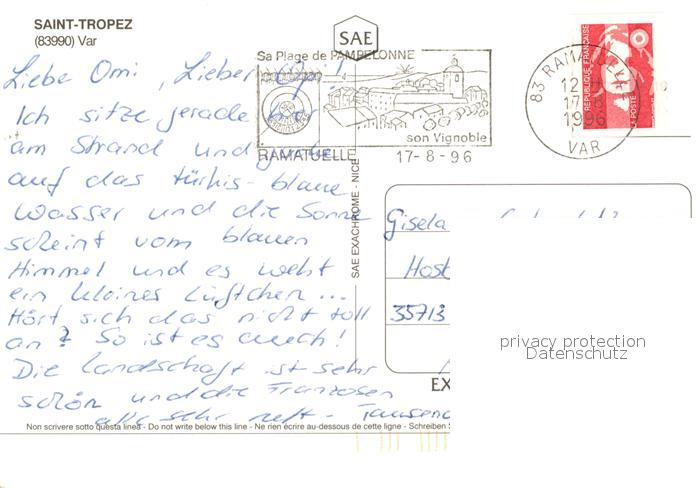 SAINT-TROPEZ
(83990) Var
SAE
Sa Plage de PAMPELONNE
son Vignoble
RAMATUELLE 17-8-96
83 RAMATUELLE
12 H
17-8
1996
VAR
REPUBLIQUE FRANÇAISE
LA POSTE
Liebe Omi, Lieber Opi!
Ich sitze gerade hier
am Strand und
auf das türkis-blaue
Wasser und die Sonne
scheint vom blauen
Himmel und es weht
ein kleines Lüftchen...
Hört sich das nicht toll
an? So ist es auch!
Die Landschaft ist sehr
schön und die Franzosen
alle sehr nett. Tausend
SAE EXACHROME - NICE
Gisela
35713
privacy protection
Datenschutz
EX
Non scrivere sotto questa linea - Do not write below this line - Ne rien écrire au-dessous de cette ligne - Schreiben S